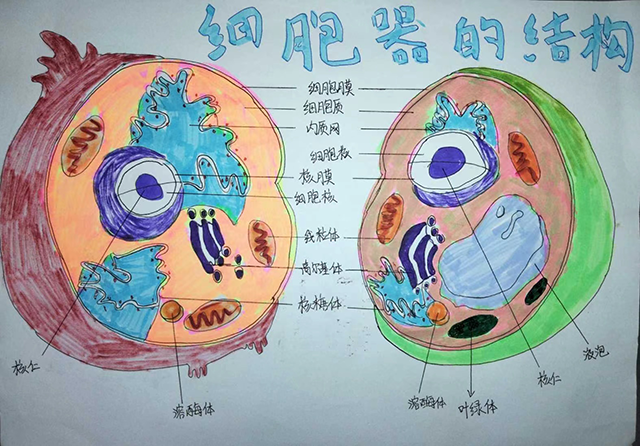 细胞器的结构
细胞膜
细胞质
内质网
细胞核
核膜
细胞核
线粒体
高尔基体
核糖体
核仁
溶酶体
溶酶体
叶绿体
核仁
液泡